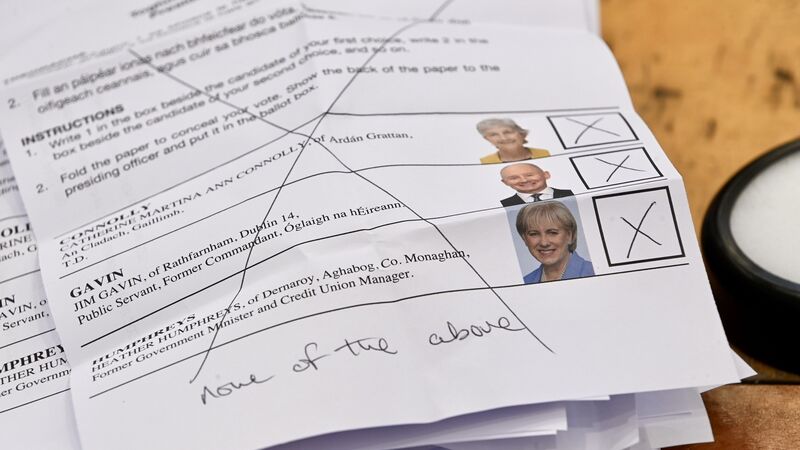 2. Fill an páipéar ionas nach bhfeicfear do vóta.
oifigeach ceannais, agus cuir sa bhosca
INSTRUCTIONS
1. Write 1 in the box beside the candidate of your first choice, write 2 in the
box beside the candidate of your second choice, and so on.
2. Fold the paper to conceal your vote. Show the back of the paper to the
presiding officer and put it in the ballot box.
CONNOLLY
CATHERINE MARTINA ANN CONNOLLY, of Ardán Grattan,
An Cladach, Gaillimh.
T.D.
GAVIN
JIM GAVIN, of Rathfarnham, Dublin 14,
Public Servant, Former Commandant, Óglaigh na hÉireann.
HUMPHREYS
HEATHER HUMPHREYS, of Dernaroy, Aghabog, Co. Monaghan,
Former Government Minister and Credit Union Manager.
none of the above
X
X
X
ERINE MARTINA
ach, Gaillimh.
GAVIN, of
Servant, Form
HUMPHREYS
HEATHER HUM
Former Government